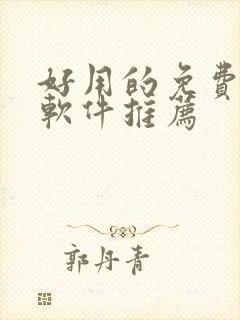 好用的免費
軟件推薦
郭丹青